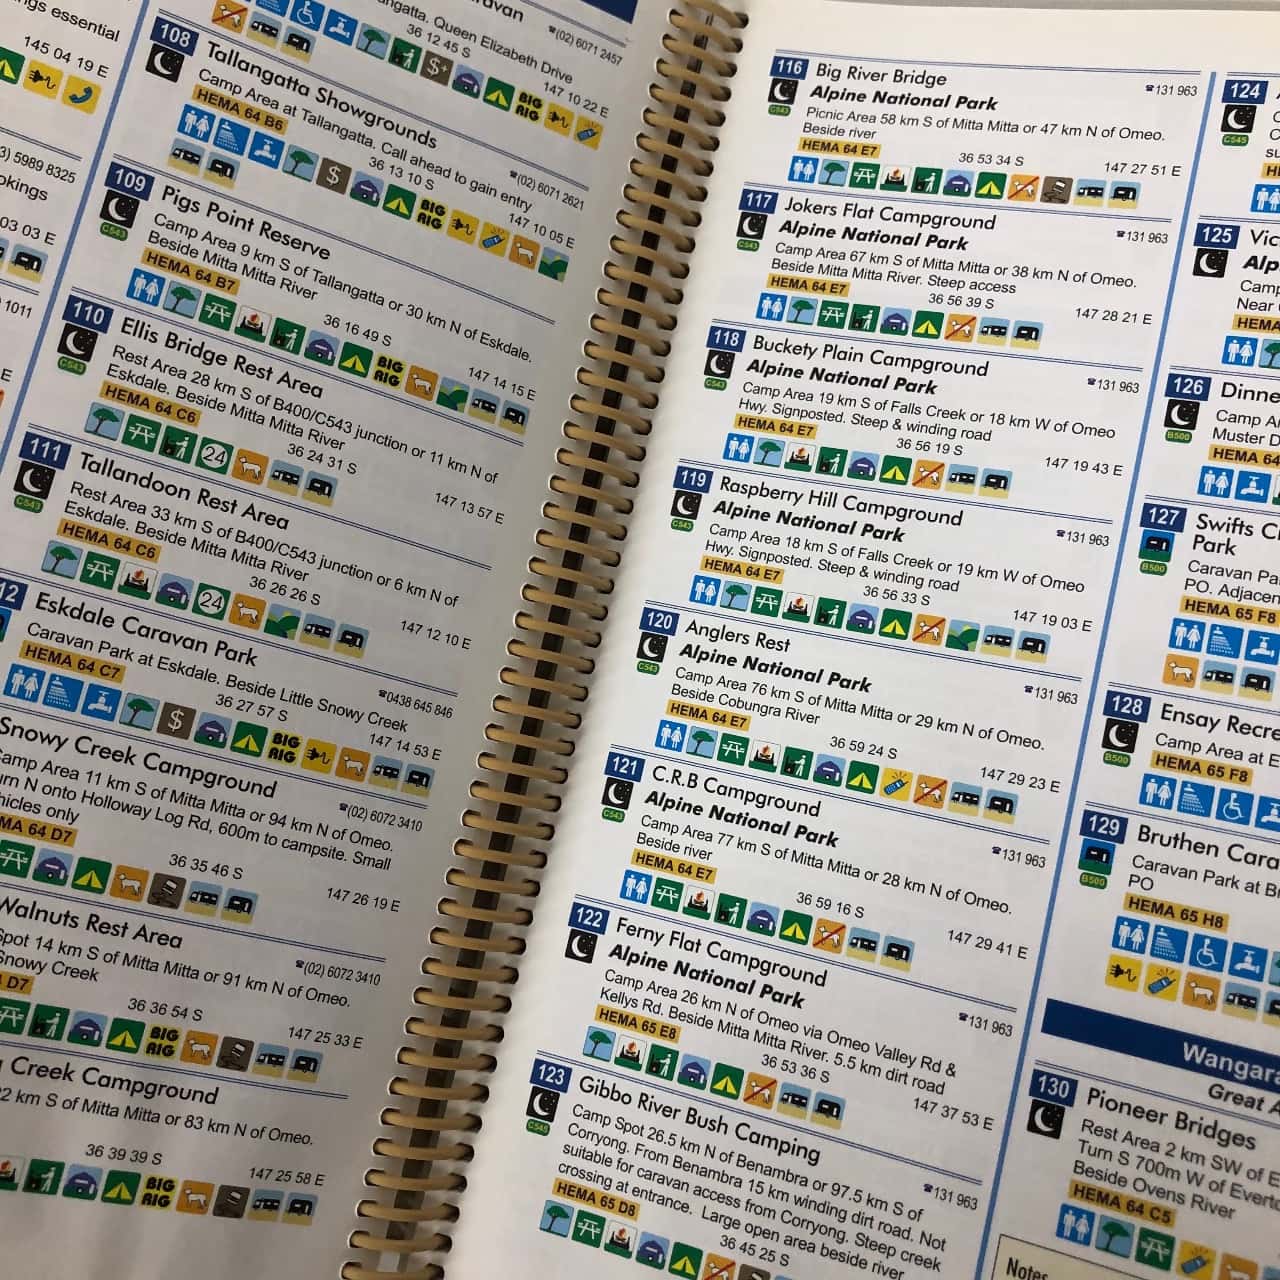 ngs essential
145 04 19 E
3) 5989 8325
okings
03 03 E
1011
E
ravan
(02) 6071 2457
ngatta. Queen Elizabeth Drive
36 12 45 S
147 10 22 E
$+
BIG
RIG
108
Tallangatta Showgrounds
(02) 6071 2621
Camp Area at Tallangatta. Call ahead to gain entry
HEMA 64 B6
36 13 10 S
147 10 05 E
$
BIG
RIG
109
C543
Pigs Point Reserve
Camp Area 9 km S of Tallangatta or 30 km N of Eskdale.
Beside Mitta Mitta River
HEMA 64 B7
36 16 49 S
147 14 15 E
BIG
RIG
110
C543
Ellis Bridge Rest Area
Rest Area 28 km S of B400/C543 junction or 11 km N of
Eskdale. Beside Mitta Mitta River
HEMA 64 C6
36 24 31 S
147 13 57 E
24
111
C543
Tallandoon Rest Area
Rest Area 33 km S of B400/C543 junction or 6 km N of
Eskdale. Beside Mitta Mitta River
HEMA 64 C6
36 26 26 S
147 12 10 E
24
12
Eskdale Caravan Park
0438 645 846
Caravan Park at Eskdale. Beside Little Snowy Creek
HEMA 64 C7
36 27 57 S
147 14 53 E
$
BIG
RIG
Snowy Creek Campground
(02) 6072 3410
Camp Area 11 km S of Mitta Mitta or 94 km N of Omeo.
urn N onto Holloway Log Rd, 600m to campsite. Small
hicles only
MA 64 D7
36 35 46 S
147 26 19 E
Walnuts Rest Area
(02) 6072 3410
Spot 14 km S of Mitta Mitta or 91 km N of Omeo.
Snowy Creek
D7
36 36 54 S
147 25 33 E
BIG
RIG
Creek Campground
2 km S of Mitta Mitta or 83 km N of Omeo.
36 39 39 S
147 25 58 E
BIG
RIG
116
C543
Big River Bridge
131 963
Alpine National Park
Picnic Area 58 km S of Mitta Mitta or 47 km N of Omeo.
Beside river
HEMA 64 E7
36 53 34 S
147 27 51 E
117
C543
Jokers Flat Campground
131 963
Alpine National Park
Camp Area 67 km S of Mitta Mitta or 38 km N of Omeo.
Beside Mitta Mitta River. Steep access
HEMA 64 E7
36 56 39 S
147 28 21 E
118
C543
Buckety Plain Campground
131 963
Alpine National Park
Camp Area 19 km S of Falls Creek or 18 km W of Omeo
Hwy. Signposted. Steep & winding road
HEMA 64 E7
36 56 19 S
147 19 43 E
119
C543
Raspberry Hill Campground
131 963
Alpine National Park
Camp Area 18 km S of Falls Creek or 19 km W of Omeo
Hwy. Signposted. Steep & winding road
HEMA 64 E7
36 56 33 S
147 19 03 E
120
C543
Anglers Rest
131 963
Alpine National Park
Camp Area 76 km S of Mitta Mitta or 29 km N of Omeo.
Beside Cobungra River
HEMA 64 E7
36 59 24 S
147 29 23 E
121
C543
C.R.B Campground
131 963
Alpine National Park
Camp Area 77 km S of Mitta Mitta or 28 km N of Omeo.
Beside river
HEMA 64 E7
36 59 16 S
147 29 41 E
122
Ferny Flat Campground
131 963
Alpine National Park
Camp Area 26 km N of Omeo via Omeo Valley Rd &
Kellys Rd. Beside Mitta Mitta River. 5.5 km dirt road
HEMA 65 E8
36 53 36 S
147 37 53 E
123
C545
Gibbo River Bush Camping
131 963
Camp Spot 26.5 km N of Benambra or 97.5 km S of
Corryong. From Benambra 15 km winding dirt road. Not
suitable for caravan access from Corryong. Steep creek
crossing at entrance. Large open area beside river
HEMA 65 D8
36 45 25 S
124
C545
125
Vic
Alp
Camp
Near
HEMA
126
B500
Dinne
Camp A
Muster D
HEMA 64
127
B500
Swifts C
Park
Caravan Pa
PO. Adjacen
HEMA 65 F8
128
B500
Ensay Recre
Camp Area at E
HEMA 65 F8
129
B500
Bruthen Cara
Caravan Park at B
PO
HEMA 65 H8
Wangara
Great A
130
Pioneer Bridges
Rest Area 2 km SW of E
Turn S 700m W of Everto
Beside Ovens River
HEMA 64 C5
Notes